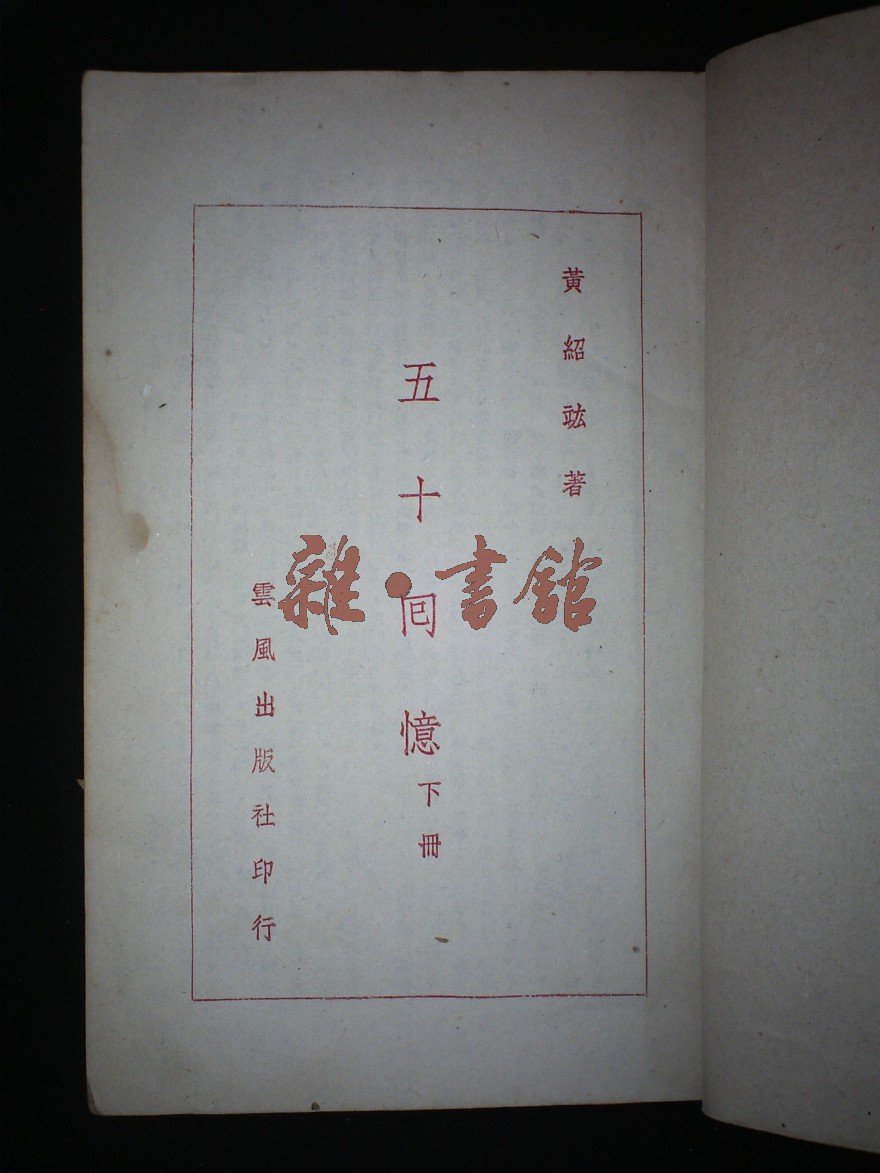 黃紹竑著
五十囘憶
下冊
雲風出版社印行
雜·書館